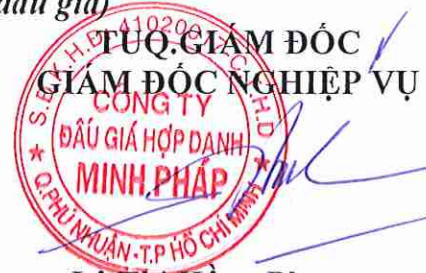 đấu giá)
TUQ.GIÁM ĐỐC
GIÁM ĐỐC NGHIỆP VỤ
CÔNG TY
ĐẤU GIÁ HỢP DANH
MINH PHÁP
Q.PHÚ NHUẬN - T.P HỒ CHÍ MINH